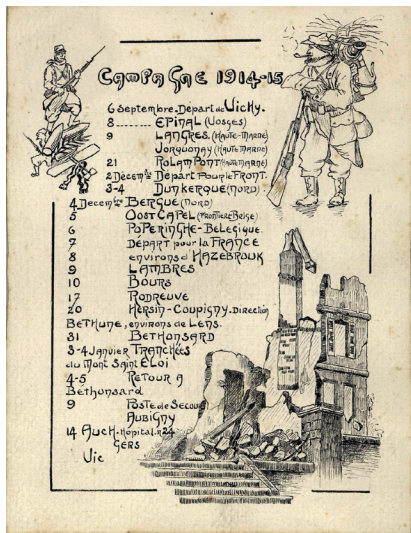 CAMPAGNE 1914-15
6 Septembre. Depart de Vichy.
8 ........ EPINAL (Vosges)
9 LANGRES. (HAUTE-MARNE)
JORQUONAY (HAUTE MARNE)
21 ROLAMPONT (HAUTE MARNE)
2 Décembre Départ pour le FRONT.
3-4 DUNKERQUE (NORD)
4 Decembre BERGUE (NORD)
5 OOST CAPEL (FRONTIERE Belge)
6 POPERINGHE-BELEGIQUE.
7 DÉPART pour la FRANCE
8 environs d'HAZEBROUK
9 LAMBRES
10 BOURS
17 RODREUVE
20 HERSIN-COUPIGNY. Direction
BETHUNE, environs de LENS.
31 BETHONSARD
3-4 JANVIER TRANCHÉES
du MONT SAINT ELOI
4-5 RETOUR A
Béthonsard
9 POSTE de Secours
AUBIGNY
14 AUCH. Hopital. n 24
GERS
Vic